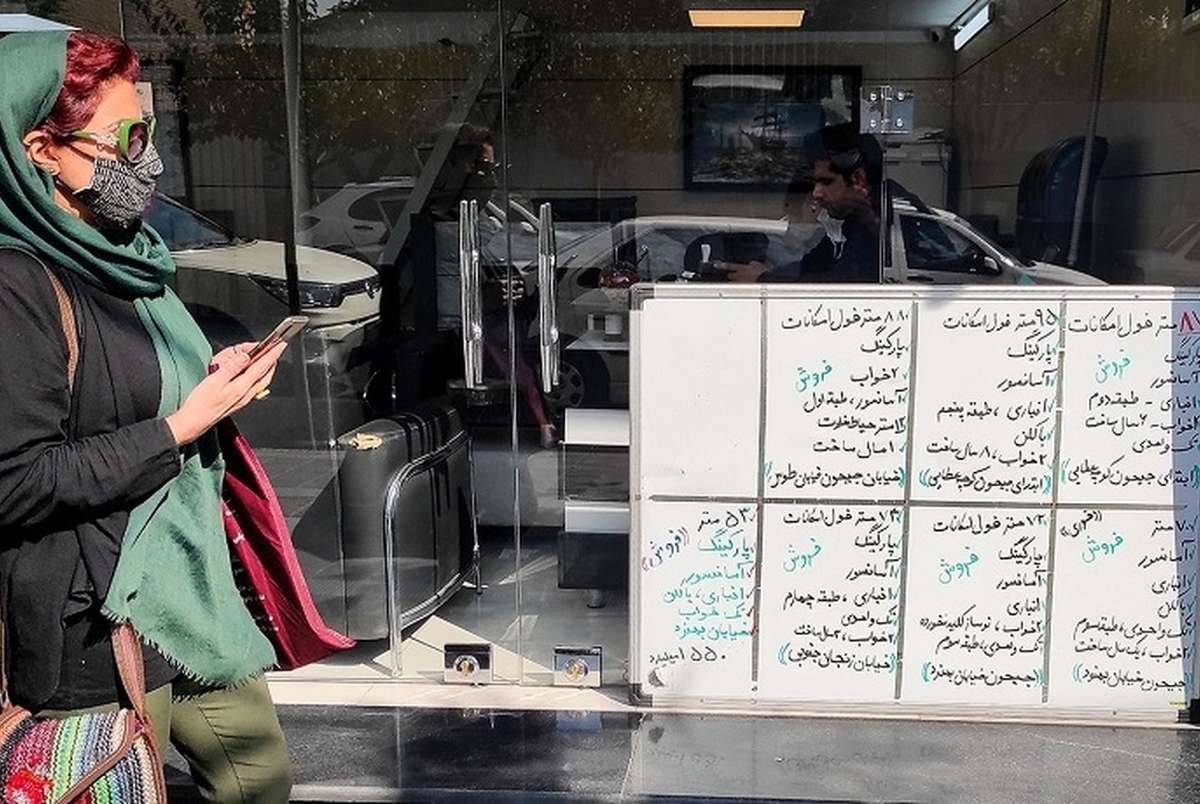 متر فول امکانات
پارکینگ
فروش
آسانسور
انباری - طبقه دوم
۲خواب - ۶سال ساخت
تک واحدی
ابتدای جیحون کوچه عطایی
۹۵ متر فول امکانات
پارکینگ
آسانسور
انباری ، طبقه پنجم
بالکن
۲خواب ، ۸ سال ساخت
((ابتدای جیحون کوچه عطایی))
۸۸ متر فول امکانات
پارکینگ
۲خواب فروش
آسانسور ، طبقه اول
۱۲متر حیاط خلوت
۱۰سال ساخت
((خیابان جیحون خیابان طوس))
۷۰ متر ((فوری))
فروش
آسانسور
انباری
بالکن
تک واحدی ، طبقه سوم
۲خواب ، یک سال ساخت
((جیحون خیابان بهنود))
۷۲ متر فول امکانات
پارکینگ
فروش
آسانسور
انباری
۲خواب ، نوساز کلید نخورده
تک واحدی ، طبقه سوم
((جیحون خیابان بهنود))
۷۳ متر فول امکانات
پارکینگ
فروش
آسانسور
انباری ، طبقه چهارم
تک واحدی
۲خواب ، ۳سال ساخت
((خیابان زنجان جنوبی))
۵۳ متر
پارکینگ ((فروش))
آسانسور
انباری ، بالکن
تک خواب
خیابان بهنود
۵۵۰ میلیارد